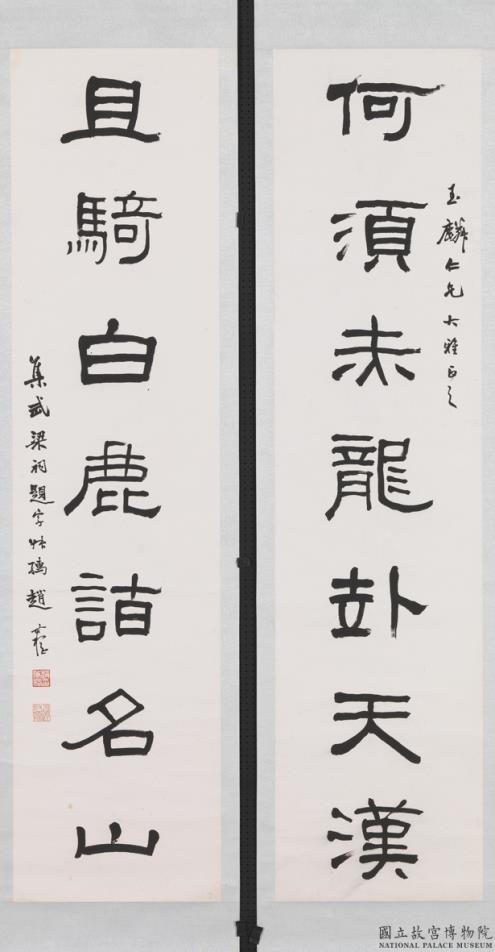 玉麟仁兄大雅正之
何須赤龍赴天漢
且騎白鹿詣名山
集武梁祠題字 趙
國立故宮博物院
NATIONAL PALACE MUSEUM